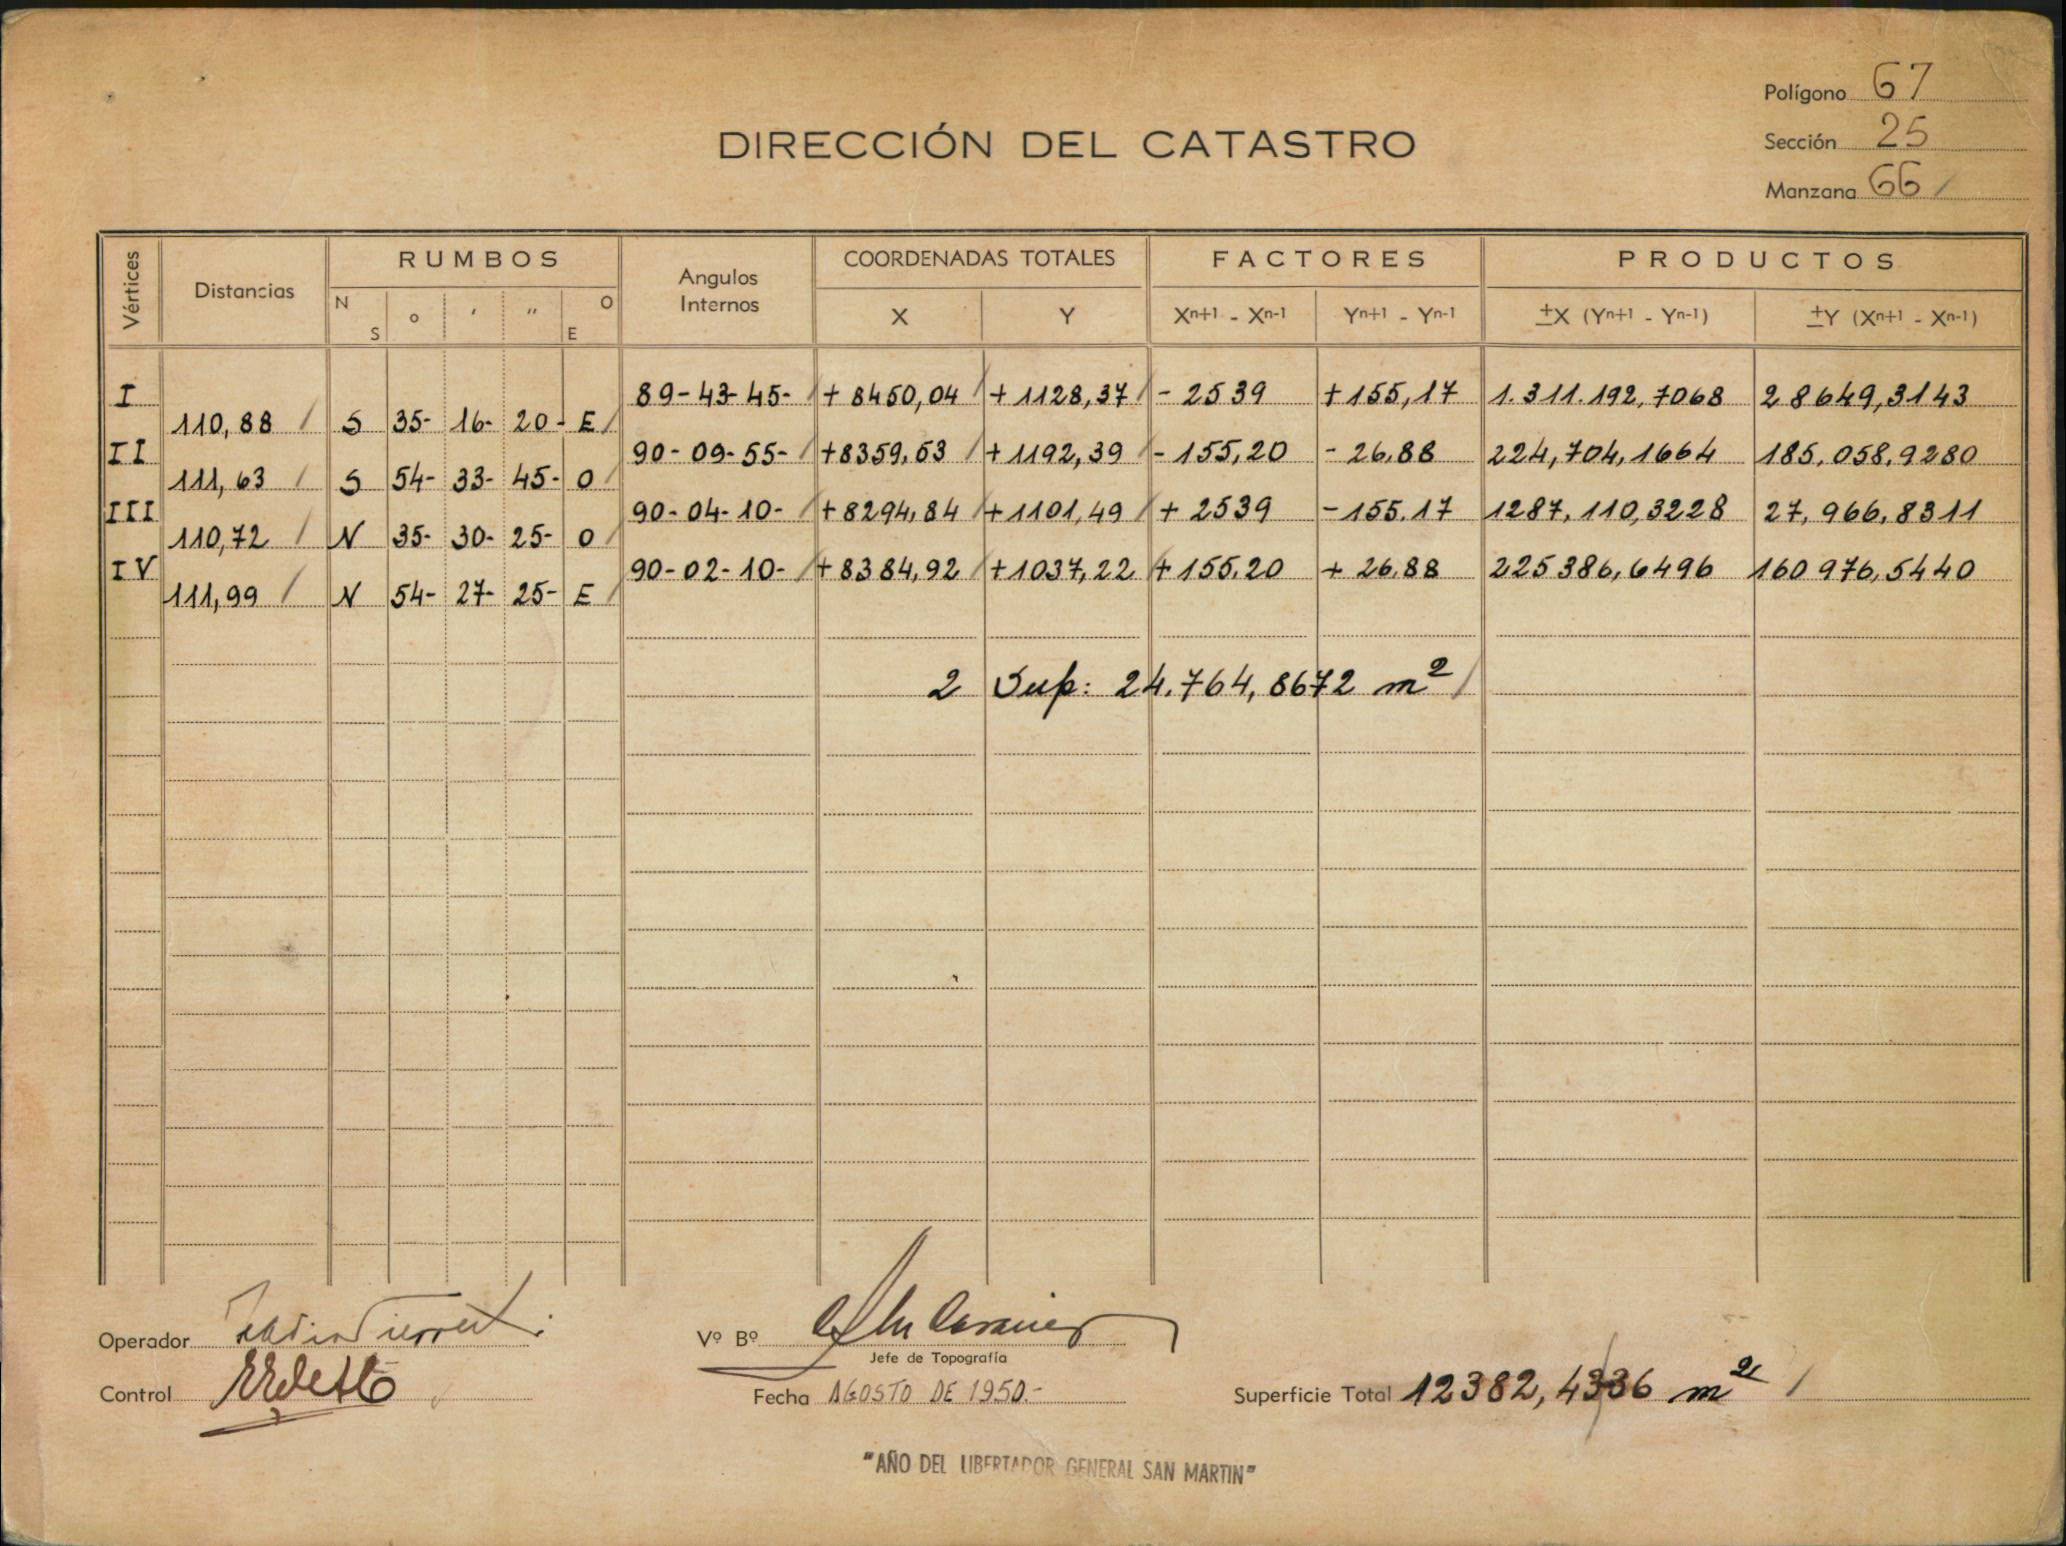 Polígono 67
DIRECCIÓN DEL CATASTRO
Sección 25
Manzana 66 /
Vértices Distancias RUMBOS Angulos Internos COORDENADAS TOTALES FACTORES PRODUCTOS
N S o ' " O E X Y Xn+1 - Xn-1 Yn+1 - Yn-1 ±X (Yn+1 - Yn-1) ±Y (Xn+1 - Xn-1)
I 89-43-45- / + 8450,04 / + 1128,37 / - 2539 + 155,17 1.311.192,7068 28649,3143
110,88 / S 35- 16- 20- E /
II 90-09-55- / +8359,53 / + 1192,39 / - 155,20 - 26,88 224,704,1664 185.058,9280
111,63 / S 54- 33- 45- O /
III 90-04-10- / + 8294,84 / + 1101,49 / + 2539 - 155.17 1287,110,3228 27,966,8311
110,72 / N 35- 30- 25- O /
IV 90-02-10- / + 8384,92 / + 1037,22 / + 155.20 + 26.88 225386,6496 160976,5440
111,99 / N 54- 27- 25- E /
2 Sup: 24.764,8672 m² /
Operador
Vº Bº
Jefe de Topografía
Control
Fecha AGOSTO DE 1950.-
Superficie Total 12382,4336 m² /
"AÑO DEL LIBERTADOR GENERAL SAN MARTIN"